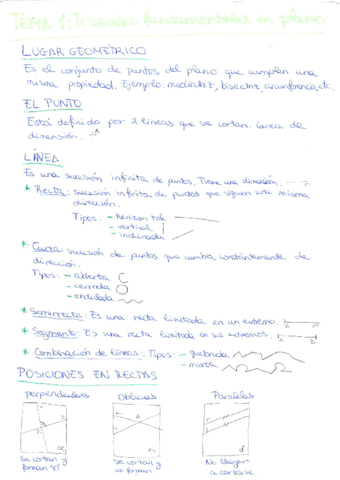 TEMA 1: Trazados fundamentales en plano
LUGAR GEOMÉTRICO
Es el conjunto de puntos del plano que cumplen una
misma propiedad. Ejemplo: mediatriz, bisectriz, circunferencia, etc.
EL PUNTO
Está definido por 2 líneas que se cortan. Carece de
dimensión. ·A
LÍNEA
Es una sucesión infinita de puntos. Tiene una dimensión.
* Recta: sucesión infinita de puntos que siguen una misma
dirección.
Tipos: - horizontal
- vertical
- inclinada
* Curva: sucesión de puntos que cambia constantemente de
dirección.
Tipos: - abierta
- cerrada
- ondulada
* Semirrecta: Es una recta limitada en un extremo.
* Segmento: Es una recta limitada en sus extremos.
* Combinación de líneas: Tipos: - quebrada
- mixta
POSICIONES EN RECTAS
Perpendiculares Oblicuas Paralelas
Se cortan y
forman 90º
Se cortan y
No llegan
a cortarse